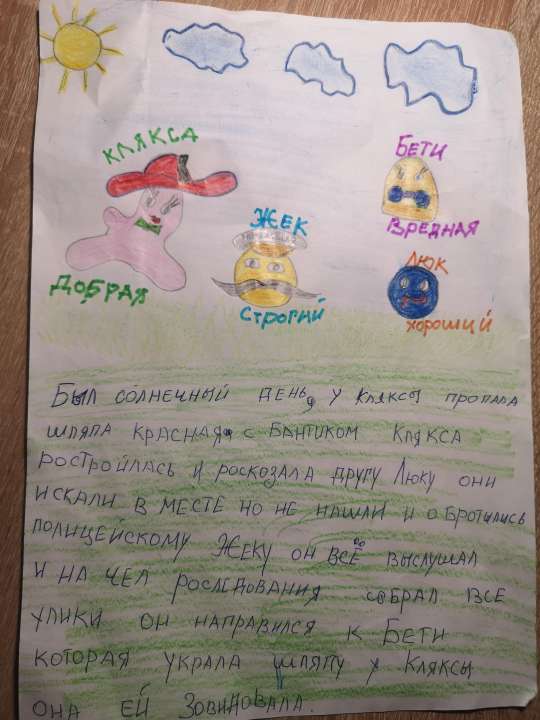 КЛЯКСА
БЕТИ
ЖЕК
ВРЕДНАЯ
ЛЮК
ДОБРАЯ
СТРОГИЙ
ХОРОШИЙ
БЫЛ СОЛНЕЧНЫЙ ДЕНЬ, У КЛЯКСЫ ПРОПАЛА
ШЛЯПА КРАСНАЯ С БАНТИКОМ КЛЯКСА
РОСТРОИЛАСЬ И РОСКОЗАЛА ДРУГУ ЛЮКУ ОНИ
ИСКАЛИ В МЕСТЕ НО НЕ НАШЛИ И ОБРОТИЛИСЬ
ПОЛИЦЕЙСКОМУ ЖЕКУ ОН ВСЁ ВЫСЛУШАЛ
И НА ЧЕЛ РОСЛЕДОВАНИЯ СОБРАЛ ВСЕ
УЛИКИ ОН НАПРАВИЛСЯ К БЕТИ
КОТОРАЯ УКРАЛА ШЛЯПУ У КЛЯКСЫ
ОНА ЕЙ ЗОВИДОВАЛА.